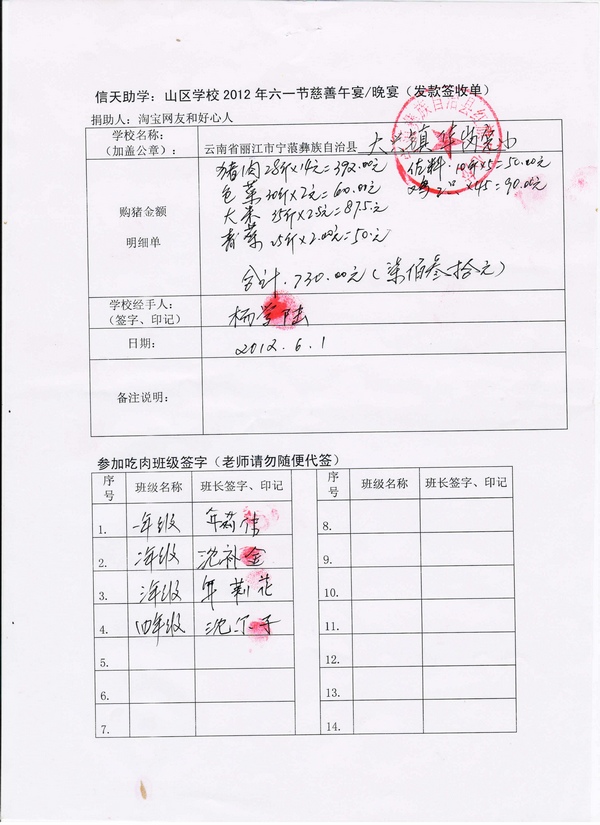 信天助学：山区学校2012年六一节慈善午宴/晚宴（发款签收单）
捐助人：淘宝网友和好心人
学校名称：
（加盖公章）：
云南省丽江市宁蒗彝族自治县 大兴镇
购猪金额
明细单
猪肉28斤×14元=392.00元
佐料.10斤×5=50.00元
包菜30斤×2元=60.00元
×45=90.00元
大米 35斤×2.5元=87.5元
青菜25斤×2.00元=50元
合计.730.00元（柒佰叁拾元）
学校经手人：
（签字、印记）
杨学陆
日期：
2012.6.1
备注说明：
参加吃肉班级签字（老师请勿随便代签）
序号 班级名称 班长签字、印记 序号 班级名称 班长签字、印记
1. 一年级
8.
2. 二年级 沈补金
9.
3. 三年级 年莉花
10.
4. 四年级
11.
5.
12.
6.
13.
7.
14.